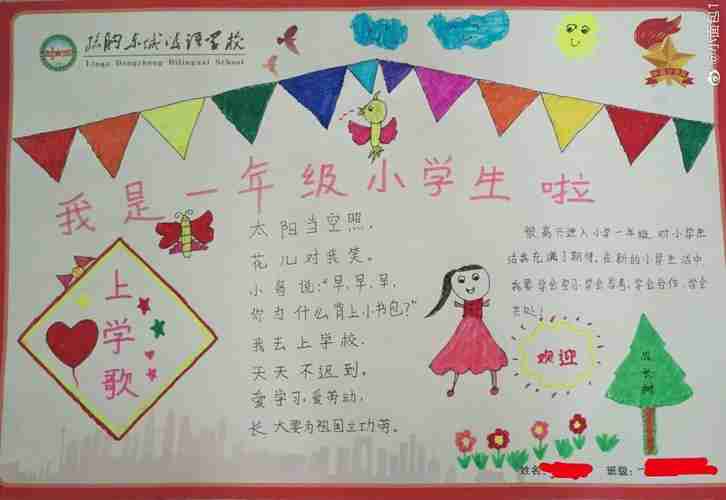 临朐东城双语学校
Linqu Dongcheng Bilingual School
@小面包1
我是一年级小学生啦
上学歌
太阳当空照，
花儿对我笑。
小鸟说:"早,早,早,
你为什么背上小书包?"
我去上学校，
天天不迟到。
爱学习,爱劳动，
长大要为祖国立功劳。
很高兴进入小学一年级,对小学生
活我充满了期待,在新的小学生活中
我要学会学习,学会思考,学会合作,学会
欢迎
成长树
姓名:
班级:一